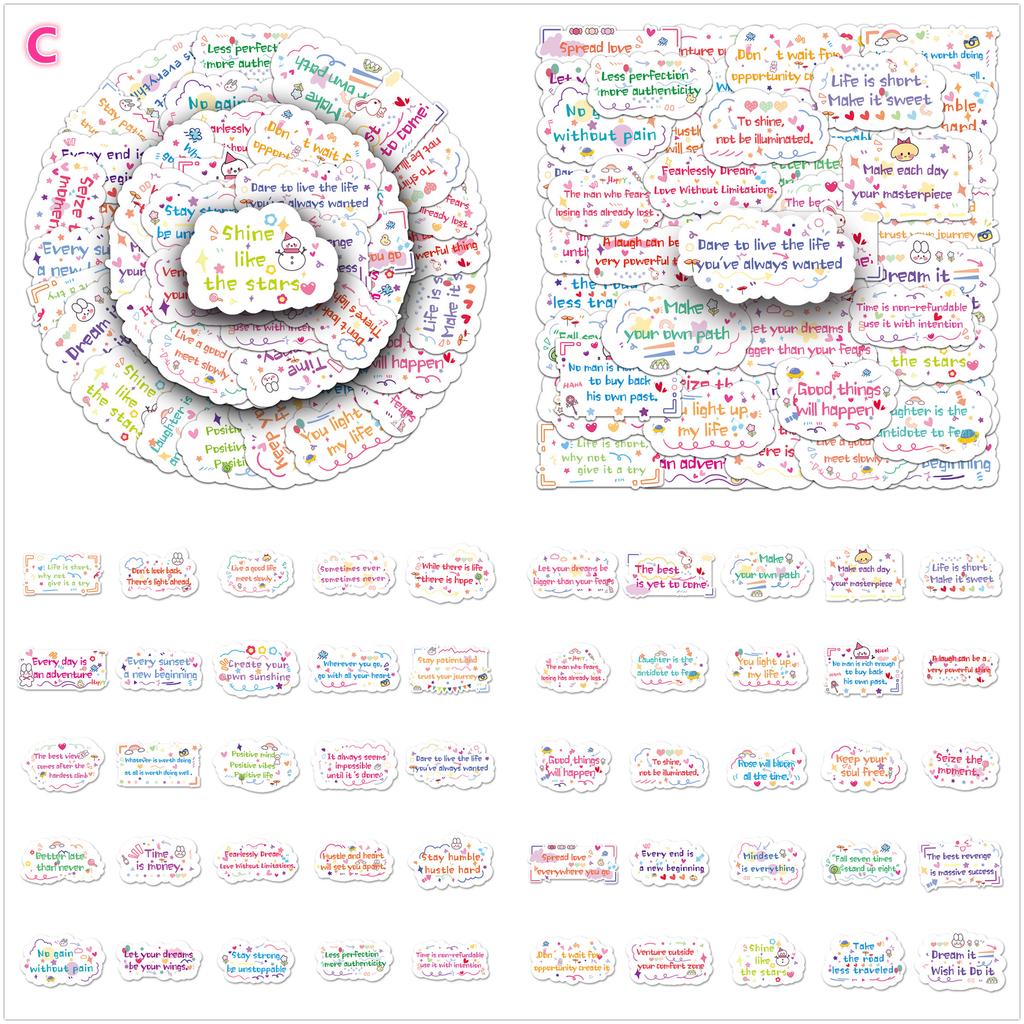 C
Less perfection
more authen
Make
own path
No gain
Don't wait f
Every end is
Seize t
momen
Dare to live the life
you've always wanted
Shine
like
the stars
Live a good
meet slowly
Time
Shine
like
the stars
You light
my life
Spread love
Less perfection
more authenticity
Don't wait for
opportunity c
is worth doing
Life is short
Make it sweet
No gain
without pain
To shine,
not be illuminated.
Fearlessly Dream,
Love Without Limitations.
The man who fears
losing has already lost.
Make each day
your masterpiece
A laugh can be
very powerful
Dare to live the life
you've always wanted
trust your journey
Dream it
Make
your own path
Time is non-refundable
use it with intention
let your dreams
gger than your fears
the stars
No man is
to buy back
his own past.
HAHA
light up
my life
Good things
will happen
ghter is the
antidote to fe
Life is short,
why not
give it a try
an adven
meet slowly
beginning
Life is short,
why not
give it a try
Don't look back.
There's light ahead.
Live a good life
meet slowly
Sometimes ever
sometimes never
While there is life
there is hope
Let your dreams be
bigger than your fears
The best
is yet to come
Make
your own path
Make each day
your masterpiece
Life is short
Make it sweet
Every day is
an adventure
Every sunset
a new beginning
Create your
own sunshine
Wherever you go,
go with all your heart
Stay patient and
trust your journey
The man who fears
losing has already lost.
Laughter is the
antidote to fe
You light up
my life
Nice!
No man is rich enough
to buy back
his own past.
A laugh can be a
very powerful thing
The best view
comes after the
hardest climb
Whatever is worth doing
at all is worth doing well.
Positive mind
Positive vibes
Positive life
It always seems
impossible
until it's done.
Dare to live the life
you've always wanted
Good things
will happen
To shine,
not be illuminated.
Rose will bloom
all the time.
Keep your
soul free.
Seize the
moment.
Better late
than never
Time
is money.
Fearlessly Dream,
Love Without Limitations.
Hustle and heart
will set you apart.
Stay humble,
hustle hard
Spread love
everywhere you go
Every end is
a new beginning
Mindset
is everything
Fall seven times
stand up eight
The best revenge
is massive success
No gain
without pain
Let your dreams
be your wings.
Stay strong
be unstoppable
Less perfection
more authenticity
Time is non-refundable
use it with intention
Don't wait for
opportunity create it
Venture outside
your comfort zone
Shine
like
the stars
Take
the road
less traveled
Dream it
Wish it Do it